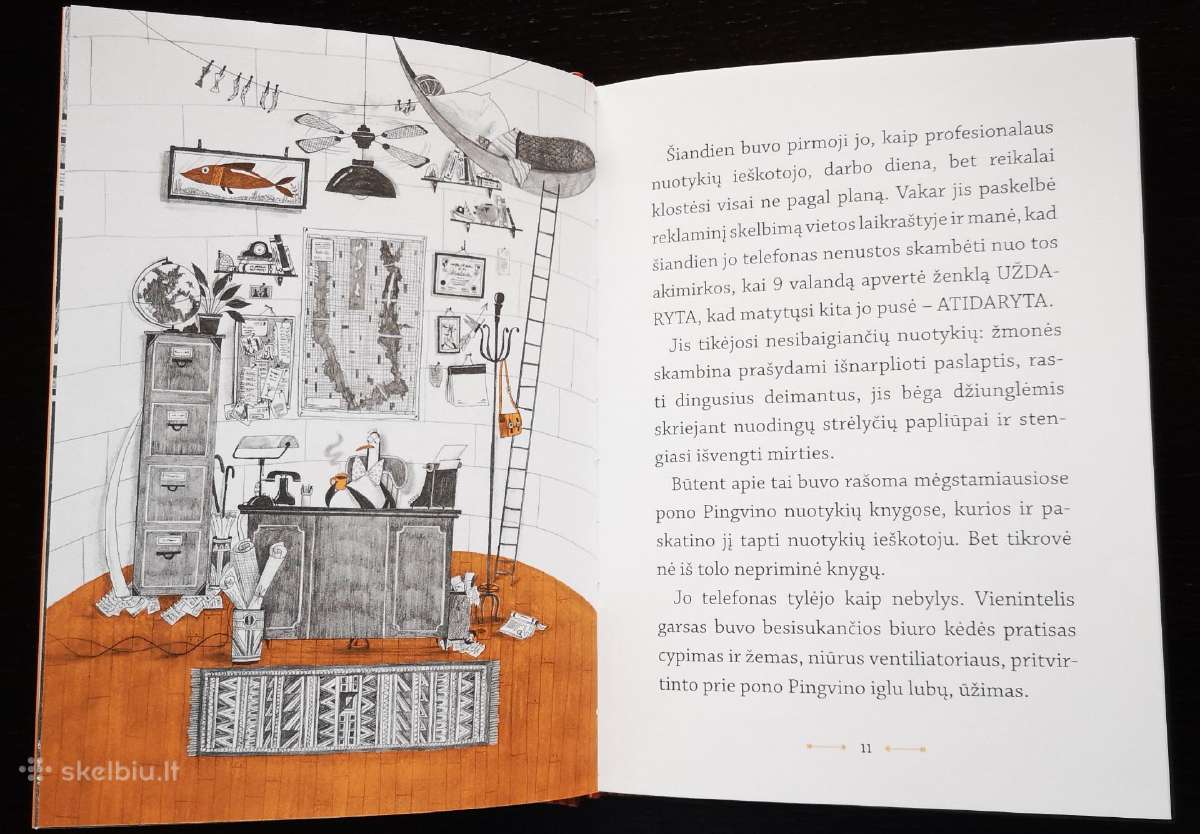 Šiandien buvo pirmoji jo, kaip profesionalaus
nuotykių ieškotojo, darbo diena, bet reikalai
klostėsi visai ne pagal planą. Vakar jis paskelbė
reklaminį skelbimą vietos laikraštyje ir manė, kad
šiandien jo telefonas nenustos skambėti nuo tos
akimirkos, kai 9 valandą apvertė ženklą UŽDA-
RYTA, kad matytųsi kita jo pusė – ATIDARYTA.
Jis tikėjosi nesibaigiančių nuotykių: žmonės
skambina prašydami išnarplioti paslaptis, ras-
ti dingusius deimantus, jis bėga džiunglėmis
skriejant nuodingų strėlyčių papliūpai ir sten-
giasi išvengti mirties.
Būtent apie tai buvo rašoma mėgstamiausiose
pono Pingvino nuotykių knygose, kurios ir pa-
skatino jį tapti nuotykių ieškotoju. Bet tikrovė
nė iš tolo nepriminė knygų.
Jo telefonas tylėjo kaip nebylys. Vienintelis
garsas buvo besisukančios biuro kėdės pratisas
cypimas ir žemas, niūrus ventiliatoriaus, pritvir-
tinto prie pono Pingvino iglu lubų, ūžimas.
11
skelbiu.lt